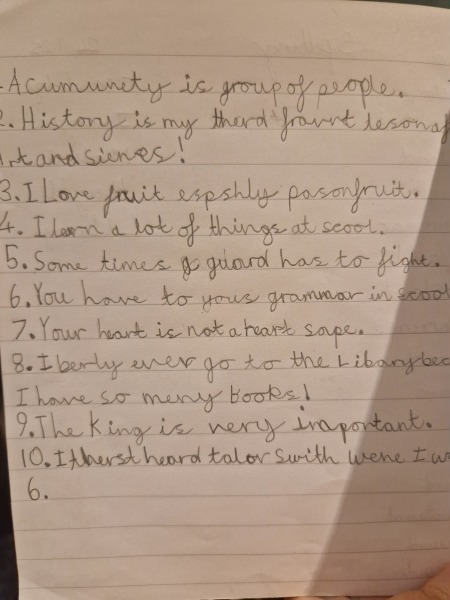 A cumunety is group of people.
2. History is my therd fravrt lesonaf
Art and sienes!
3. I Love fruit espshly pasonfruit.
4. I learn a lot of things at scool.
5. Some times guard has to fight.
6. You have to yous grammar in scool
7. Your heart is not a heart sape.
8. I berly ever go to the Libary bec
I have so meny books!
9. The King is very important.
10. I therst heard talor swith wene I w
6.